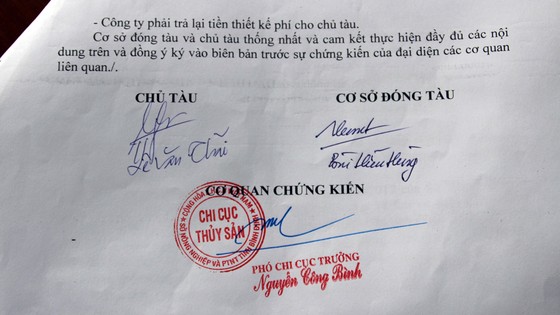 - Công ty phải trả lại tiền thiết kế phí cho chủ tàu.
Cơ sở đóng tàu và chủ tàu thống nhất và cam kết thực hiện đầy đủ các nội
dung trên và đồng ý ký vào biên bản trước sự chứng kiến của đại diện các cơ quan
liên quan./.
CHỦ TÀU
CƠ SỞ ĐÓNG TÀU
Văn
CƠ QUAN CHỨNG KIẾN
CHI CỤC
THỦY SẢN
PHÓ CHI CỤC TRƯỞNG
Nguyễn Công Bình